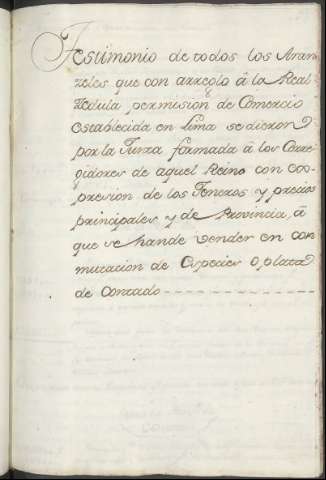 Testimonio de todos los Aran
zeles que con arreglo â la Real
Zedula permision de Comercio
establecida en Lima se dieron
por la Junta formada â los Corre
gidores de aquel Reino con ex-
presion de los Jeneros y precios
principales y de Provincia, â
que se hande vender en con
mutacion de Especies o plata
de Contado